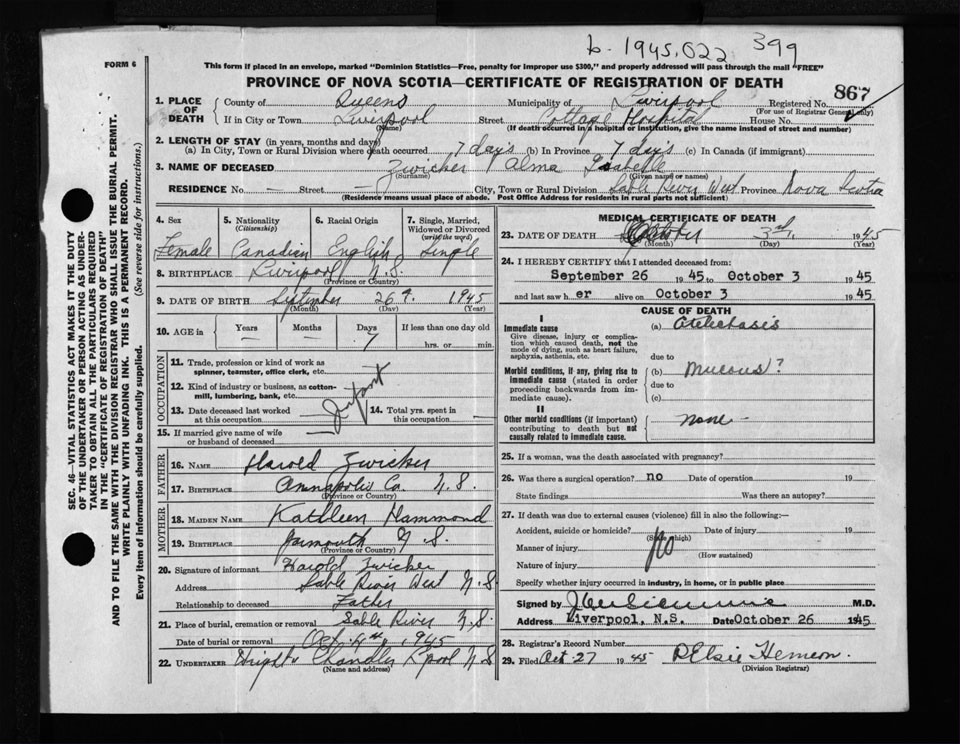 b. 1945.022 399
FORM 6
This form if placed in an envelope, marked "Dominion Statistics—Free, penalty for improper use $300," and properly addressed will pass through the mail "FREE"
PROVINCE OF NOVA SCOTIA—CERTIFICATE OF REGISTRATION OF DEATH
867
1. PLACE OF DEATH { County of Queens Municipality of Liverpool Registered No.
(For use of Registrar General only)
If in City or Town Liverpool Street Cottage Hospital House No.
(Name) (If death occurred in a hospital or institution, give the name instead of street and number)
2. LENGTH OF STAY (in years, months and days)
(a) In City, Town or Rural Division where death occurred 7 days (b) In Province 7 days (c) In Canada (if immigrant)
3. NAME OF DECEASED Zwicker Alma Isabelle
(Surname) (Given name or names)
RESIDENCE No. — Street — City, Town or Rural Division Sable River West Province Nova Scotia
(Residence means usual place of abode. Post Office Address for residents in rural parts not sufficient)
4. Sex 5. Nationality (Citizenship) 6. Racial Origin 7. Single, Married, Widowed or Divorced (write the word)
Female Canadian English Single
8. BIRTHPLACE Liverpool N.S.
(Province or Country)
9. DATE OF BIRTH September 26 1945
(Month) (Day) (Year)
10. AGE in { Years Months Days If less than one day old
— — 7 hrs. or min.
OCCUPATION
11. Trade, profession or kind of work as spinner, teamster, office clerk, etc.
12. Kind of industry or business, as cotton-mill, lumbering, bank, etc.
Infant
13. Date deceased last worked at this occupation 14. Total yrs. spent in this occupation
15. If married give name of wife or husband of deceased —
FATHER
16. NAME Harold Zwicker
17. BIRTHPLACE Annapolis Co. N.S.
(Province or Country)
MOTHER
18. MAIDEN NAME Kathleen Hammond
19. BIRTHPLACE Yarmouth N.S.
(Province or Country)
20. Signature of informant Harold Zwicker
Address Sable River West N.S.
Relationship to deceased Father
21. Place of burial, cremation or removal Sable River N.S.
Date of burial or removal Oct. 4th, 1945
22. UNDERTAKER Chandler L'pool N.S.
(Name and address)
MEDICAL CERTIFICATE OF DEATH
23. DATE OF DEATH October 3rd, 1945
(Month) (Day) (Year)
24. I HEREBY CERTIFY that I attended deceased from:
September 26 1945 to October 3 1945
and last saw her alive on October 3 1945
CAUSE OF DEATH
I
Immediate cause
Give disease, injury or complication which caused death, not the mode of dying, such as heart failure, asphyxia, asthenia, etc.
(a) Atelectasis
due to
Morbid conditions, if any, giving rise to immediate cause (stated in order proceeding backwards from immediate cause).
(b) Mucous?
due to
(c)
II
Other morbid conditions (if important) contributing to death but not causally related to immediate cause.
None —
25. If a woman, was the death associated with pregnancy?
26. Was there a surgical operation? no Date of operation 19
State findings Was there an autopsy?
27. If death was due to external causes (violence) fill in also the following:—
Accident, suicide or homicide? Date of injury 19
(State which)
Manner of injury No
(How sustained)
Nature of injury
Specify whether injury occurred in industry, in home, or in public place
Signed by M.D.
Address Liverpool, N.S. Date October 26 1945
28. Registrar's Record Number
29. Filed Oct. 27 1945 Elsie Hemeon
(Division Registrar)
SEC. 46—VITAL STATISTICS ACT MAKES IT THE DUTY
OF THE UNDERTAKER OR PERSON ACTING AS UNDER-
TAKER TO OBTAIN ALL THE PARTICULARS REQUIRED
IN THE "CERTIFICATE OF REGISTRATION OF DEATH" AND TO FILE THE SAME WITH THE DIVISION REGISTRAR WHO SHALL ISSUE THE BURIAL PERMIT.
WRITE PLAINLY WITH UNFADING INK. THIS IS A PERMANENT RECORD.
Every item of information should be carefully supplied. (See reverse side for instructions.)